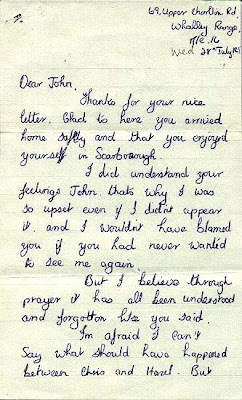 69, Upper Chorlton Rd,
Whalley Range,
M/c. 16
Wed 28th July
Dear John,
Thanks for your nice
letter. Glad to here you arrived
home safly and that you enjoyed
yourself in Scarborough.
I did understand your
feelings John, thats why I was
so upset even if I didnt appear
it, and I wouldn't have blamed
you if you had never wanted
to see me again.
But I believe through
prayer it has all been understood
and forgotton like you said.
I'm afraid I can't
say what should have happened
between Chris and Hazel. But